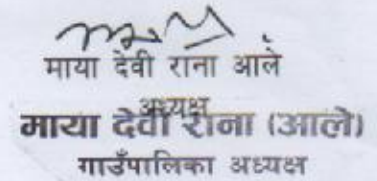 माया देवी राना आले
अध्यक्ष
माया देवी राना (आले)
गाउँपालिका अध्यक्ष